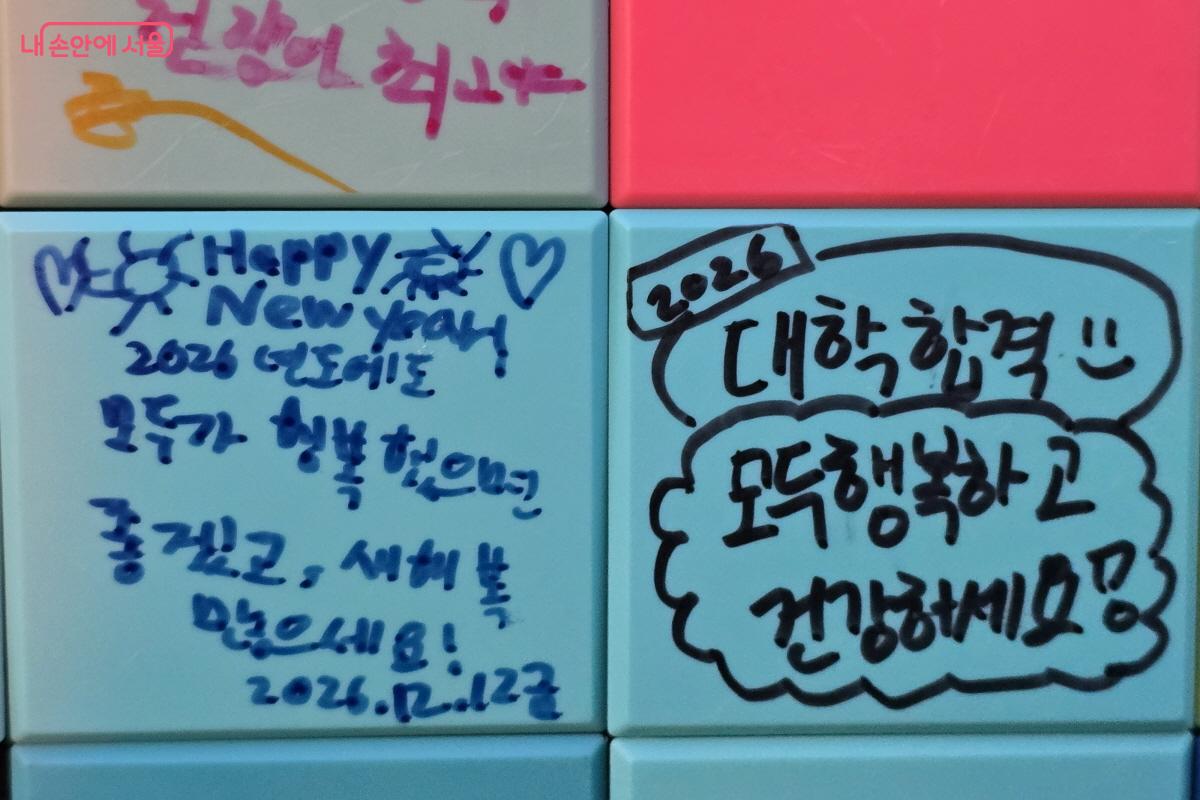 내 손안에 서울
건강이 최고
Happy
New year
2026 년도에도
모두가 행복 했으면
좋겠고, 새해 복
많으세요!
2026.12.12금
2026
대학 합격 :)
모두 행복하고
건강하세요